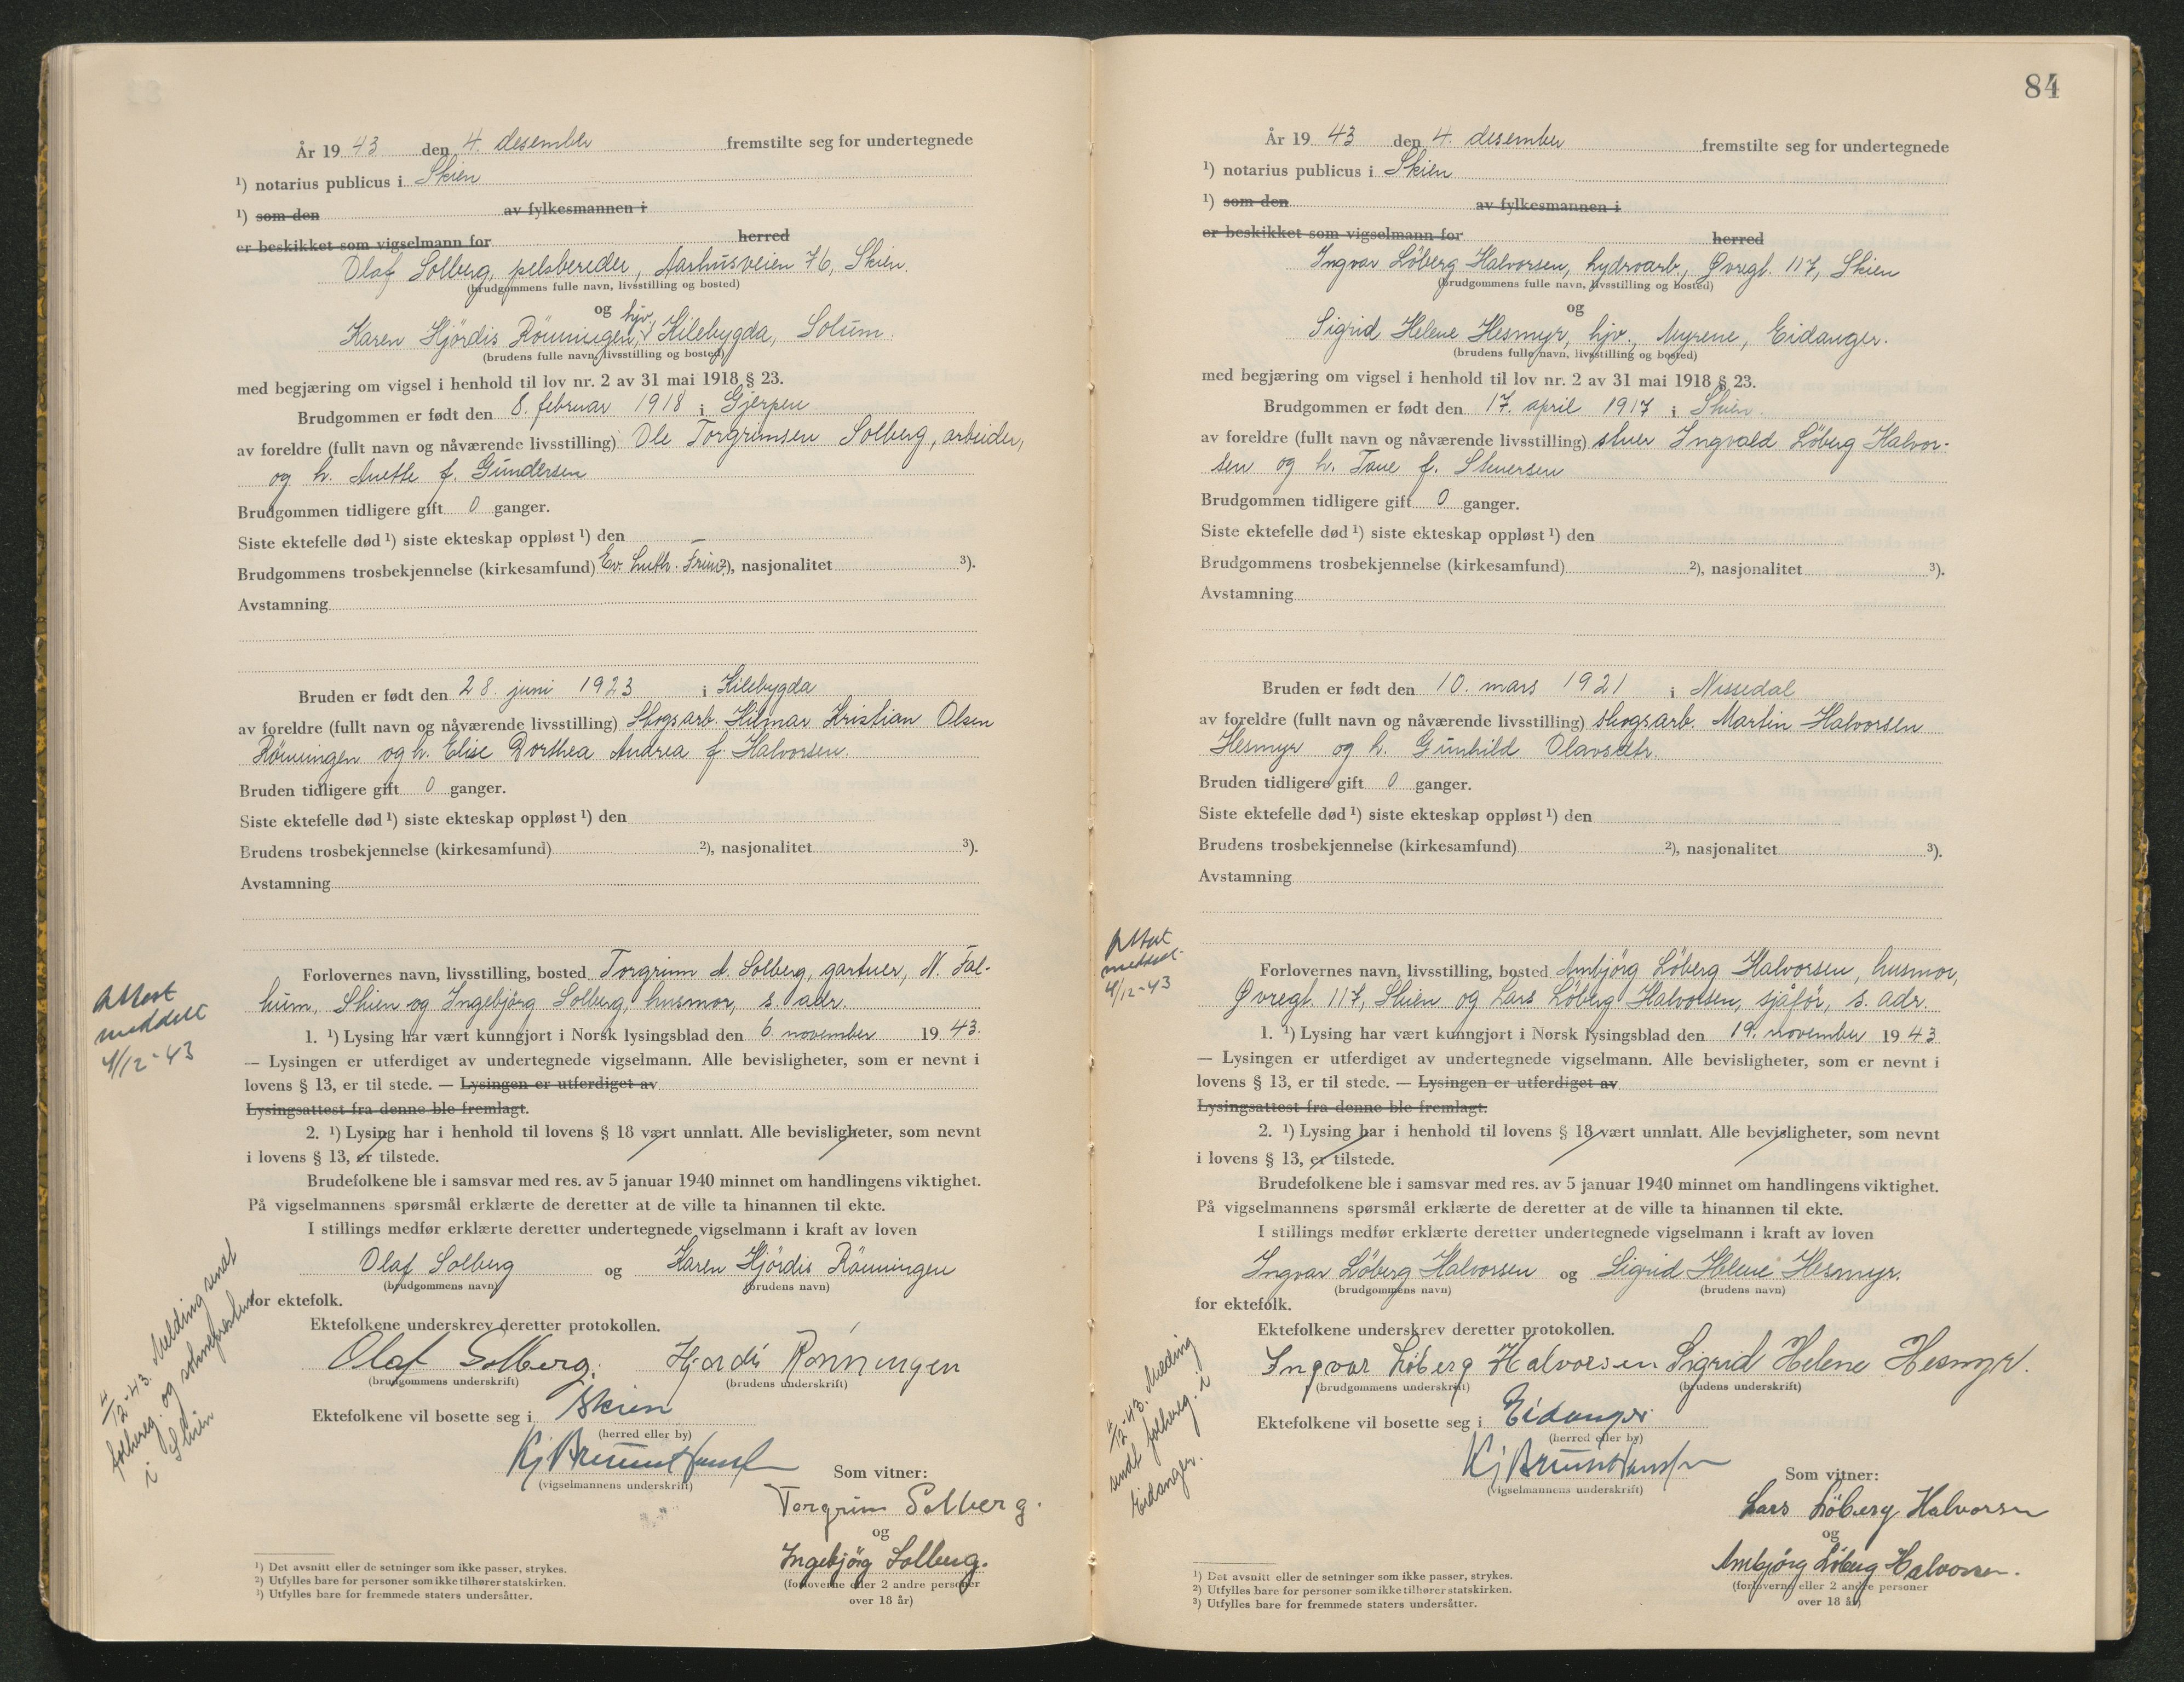 År 19 43 den 4. desember fremstilte seg for undertegnede
¹) notarius publicus i Skien
¹) som den av fylkesmannen i
er beskikket som vigselmann for herred
Olaf Solberg, pelsbereder, Aarhusveien 76, Skien.
(brudgommens fulle navn, livsstilling og bosted)
og hjv.
Karen Hjördis Rönningen, Kilebygda, Solum.
(brudens fulle navn, livsstilling og bosted)
med begjæring om vigsel i henhold til lov nr. 2 av 31 mai 1918 § 23.
Brudgommen er født den 8. februar 1918 i Gjerpen
av foreldre (fullt navn og nåværende livsstilling) Ole Torgrimsen Solberg, arbeider,
og h. Anette f. Gundersen
Brudgommen tidligere gift 0 ganger.
Siste ektefelle død ¹) siste ekteskap oppløst ¹) den —
Brudgommens trosbekjennelse (kirkesamfund) Ev. Luth. ²), nasjonalitet ³).
Avstamning
Bruden er født den 28. juni 1923 i Kilebygda
av foreldre (fullt navn og nåværende livsstilling) Skogsarb. Hilmar Kristian Olsen
Rönningen og h. Elise Dorthea Andrea f. Halvorsen.
Bruden tidligere gift 0 ganger.
Siste ektefelle død ¹) siste ekteskap oppløst ¹) den
Brudens trosbekjennelse (kirkesamfund) ²), nasjonalitet ³).
Avstamning
Forlovernes navn, livsstilling, bosted Torgrim A. Solberg, gartner, N. Fal-
kum, Skien og Ingebjörg Solberg, husmor, s. adr.
1. ¹) Lysing har vært kunngjort i Norsk lysingsblad den 6. november 19 43.
— Lysingen er utferdiget av undertegnede vigselmann. Alle bevisligheter, som er nevnt i
lovens § 13, er til stede. — Lysingen er utferdiget av
Lysingsattest fra denne ble fremlagt.
2. ¹) Lysing har i henhold til lovens § 18 vært unnlatt. Alle bevisligheter, som nevnt
i lovens § 13, er tilstede.
Brudefolkene ble i samsvar med res. av 5 januar 1940 minnet om handlingens viktighet.
På vigselmannens spørsmål erklærte de deretter at de ville ta hinannen til ekte.
I stillings medfør erklærte deretter undertegnede vigselmann i kraft av loven
Olaf Solberg og Karen Hjördis Rönningen
(brudgommens navn) (brudens navn)
for ektefolk.
Ektefolkene underskrev deretter protokollen.
Olaf Solberg. Hjordis Rönningen
(brudgommens underskrift) (brudens underskrift)
Ektefolkene vil bosette seg i Skien
(herred eller by)
(vigselmannens underskrift)
Som vitner:
Torgrim Solberg.
og
Ingebjörg Solberg.
(forloverne eller 2 andre personer
over 18 år)
Attest
meddelt
4/12-43
4/12-43. Melding sendt
folkereg. og
i Skien
¹) Det avsnitt eller de setninger som ikke passer, strykes.
²) Utfylles bare for personer som ikke tilhører statskirken.
³) Utfylles bare for fremmede staters undersåtter.
84
År 19 43 den 4. desember fremstilte seg for undertegnede
¹) notarius publicus i Skien
¹) som den av fylkesmannen i
er beskikket som vigselmann for herred
Ingvar Löberg Halvorsen, hydroarb., Øvregt. 117, Skien
(brudgommens fulle navn, livsstilling og bosted)
og
Sigrid Helene Hesmyr, hjv., Myrene, Eidanger.
(brudens fulle navn, livsstilling og bosted)
med begjæring om vigsel i henhold til lov nr. 2 av 31 mai 1918 § 23.
Brudgommen er født den 17. april 1917 i Skien.
av foreldre (fullt navn og nåværende livsstilling) stuer Ingvald Löberg Halvor-
sen og h. Tone f. Stenersen
Brudgommen tidligere gift 0 ganger.
Siste ektefelle død ¹) siste ekteskap oppløst ¹) den
Brudgommens trosbekjennelse (kirkesamfund) ²), nasjonalitet ³).
Avstamning
Bruden er født den 10. mars 1921 i Nissedal
av foreldre (fullt navn og nåværende livsstilling) skogsarb. Martin Halvorsen
Hesmyr og h. Gunhild Olavsdtr.
Bruden tidligere gift 0 ganger.
Siste ektefelle død ¹) siste ekteskap oppløst ¹) den
Brudens trosbekjennelse (kirkesamfund) ²), nasjonalitet ³).
Avstamning
Forlovernes navn, livsstilling, bosted Ambjörg Löberg Halvorsen, husmor,
Øvregt. 117, Skien og Lars Löberg Halvorsen, sjåför, s. adr.
1. ¹) Lysing har vært kunngjort i Norsk lysingsblad den 19. november 19 43
— Lysingen er utferdiget av undertegnede vigselmann. Alle bevisligheter, som er nevnt i
lovens § 13, er til stede. — Lysingen er utferdiget av
Lysingsattest fra denne ble fremlagt.
2. ¹) Lysing har i henhold til lovens § 18 vært unnlatt. Alle bevisligheter, som nevnt
i lovens § 13, er tilstede.
Brudefolkene ble i samsvar med res. av 5 januar 1940 minnet om handlingens viktighet.
På vigselmannens spørsmål erklærte de deretter at de ville ta hinannen til ekte.
I stillings medfør erklærte deretter undertegnede vigselmann i kraft av loven
Ingvar Löberg Halvorsen og Sigrid Helene Hesmyr.
(brudgommens navn) (brudens navn)
for ektefolk.
Ektefolkene underskrev deretter protokollen.
Ingvar Löberg Halvorsen Sigrid Helene Hesmyr.
(brudgommens underskrift) (brudens underskrift)
Ektefolkene vil bosette seg i Eidanger
(herred eller by)
(vigselmannens underskrift)
Som vitner:
Lars Löberg Halvorsen
og
Ambjörg Löberg Halvorsen.
(forloverne eller 2 andre personer
over 18 år)
Attest
meddelt
4/12-43
4/12-43. Melding
sendt folkereg. i
Eidanger.
¹) Det avsnitt eller de setninger som ikke passer, strykes.
²) Utfylles bare for personer som ikke tilhører statskirken.
³) Utfylles bare for fremmede staters undersåtter.